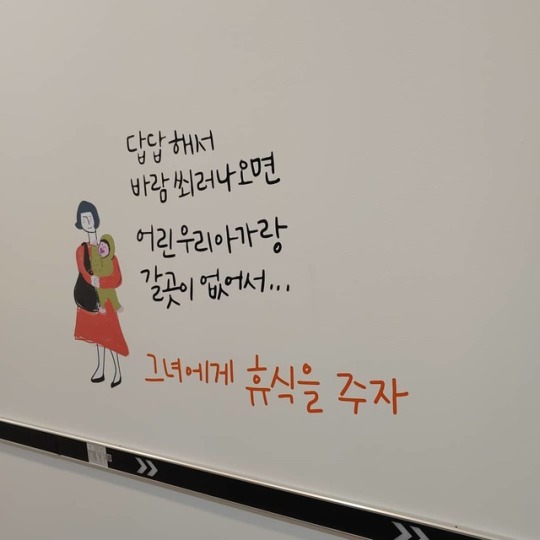 답답해서
바람 쐬러 나오면
어린 우리 아가랑
갈 곳이 없어서...
그녀에게 휴식을 주자